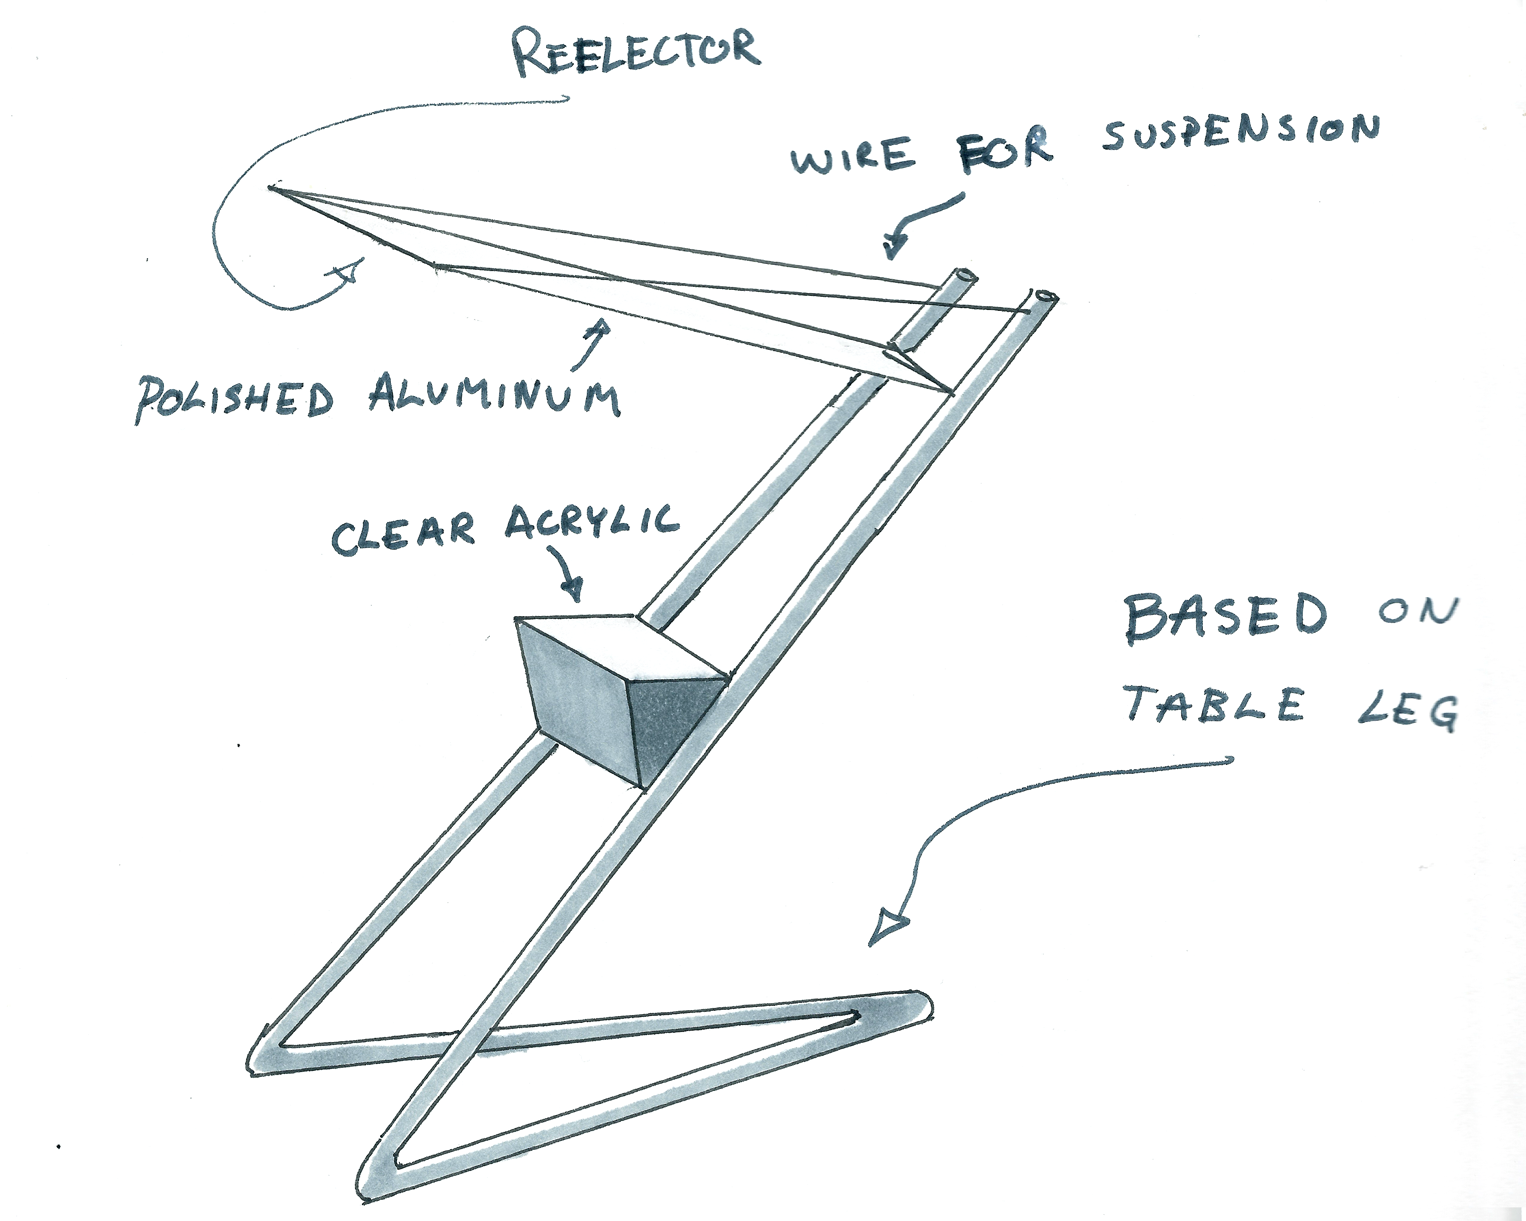 REELECTOR
WIRE FOR SUSPENSION
POLISHED ALUMINUM
CLEAR ACRYLIC
BASED ON
TABLE LEG